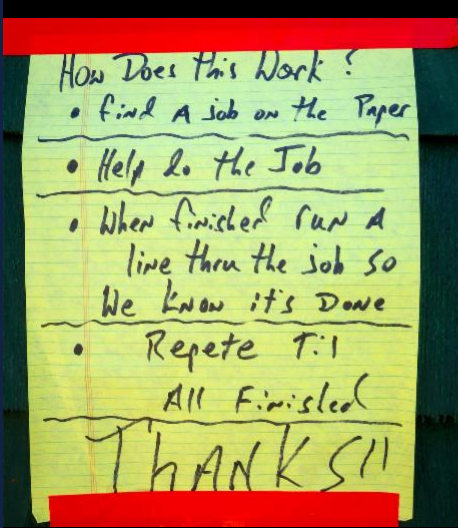 How Does this Work ?
• find A job on the Paper
• Help do the Job
• When finished run A
line thru the job so
We know it's Done
• Repete Til
All Finished
THANKS!!